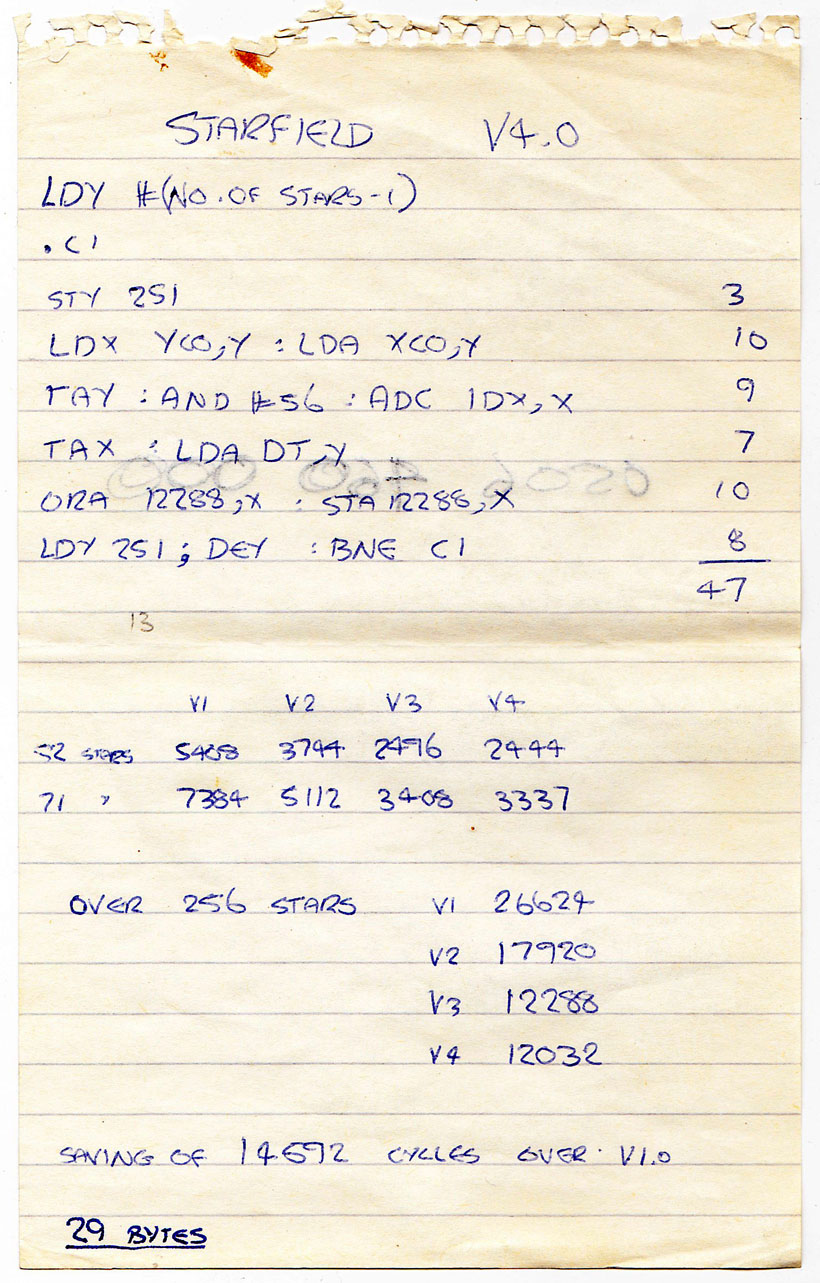 STARFIELD V4.0
LDY #(NO. OF STARS-1)
.C1
STY 251 3
LDX YCO,Y : LDA XCO,Y 10
TAY : AND #56 : ADC IDX,X 9
TAX : LDA DT,Y 7
ORA 12288,X : STA 12288,X 10
LDY 251 ; DEY : BNE C1 8
47
13
V1 V2 V3 V4
52 STARS 5408 3744 2496 2444
71 " 7384 5112 3408 3337
OVER 256 STARS V1 26624
V2 17920
V3 12288
V4 12032
SAVING OF 14592 CYCLES OVER V1.0
29 BYTES